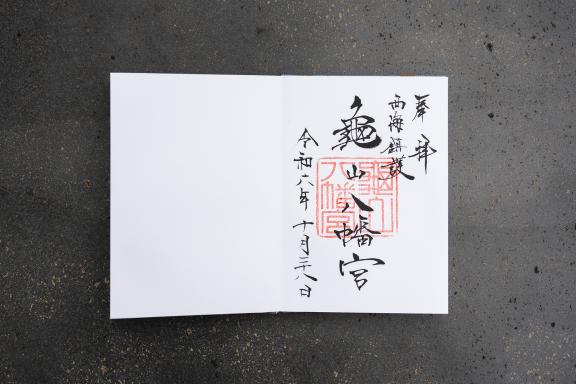 奉拝
西海鎮護
龜山八幡宮
龜山
八幡宮
令和六年十月二十八日